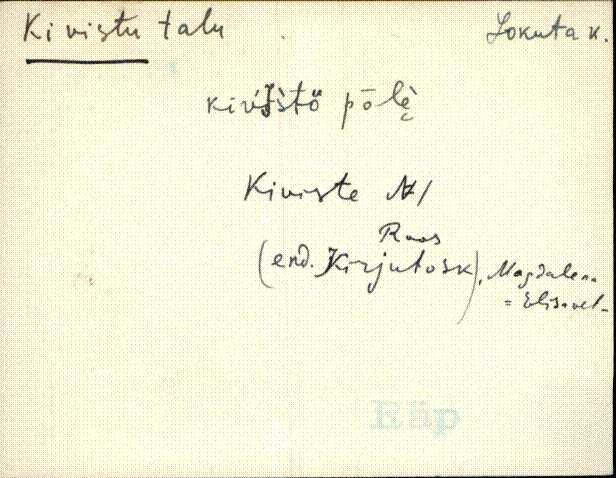 Kivistu talu Lokuta k.
kivistö pōlè
Kiviste N/
Roos
(end. Kirjutosk), Magdalena
= Elisavet-
Räp